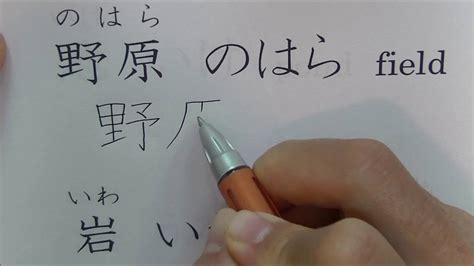 のはら
野原 のはら field
野
いわ
岩 い